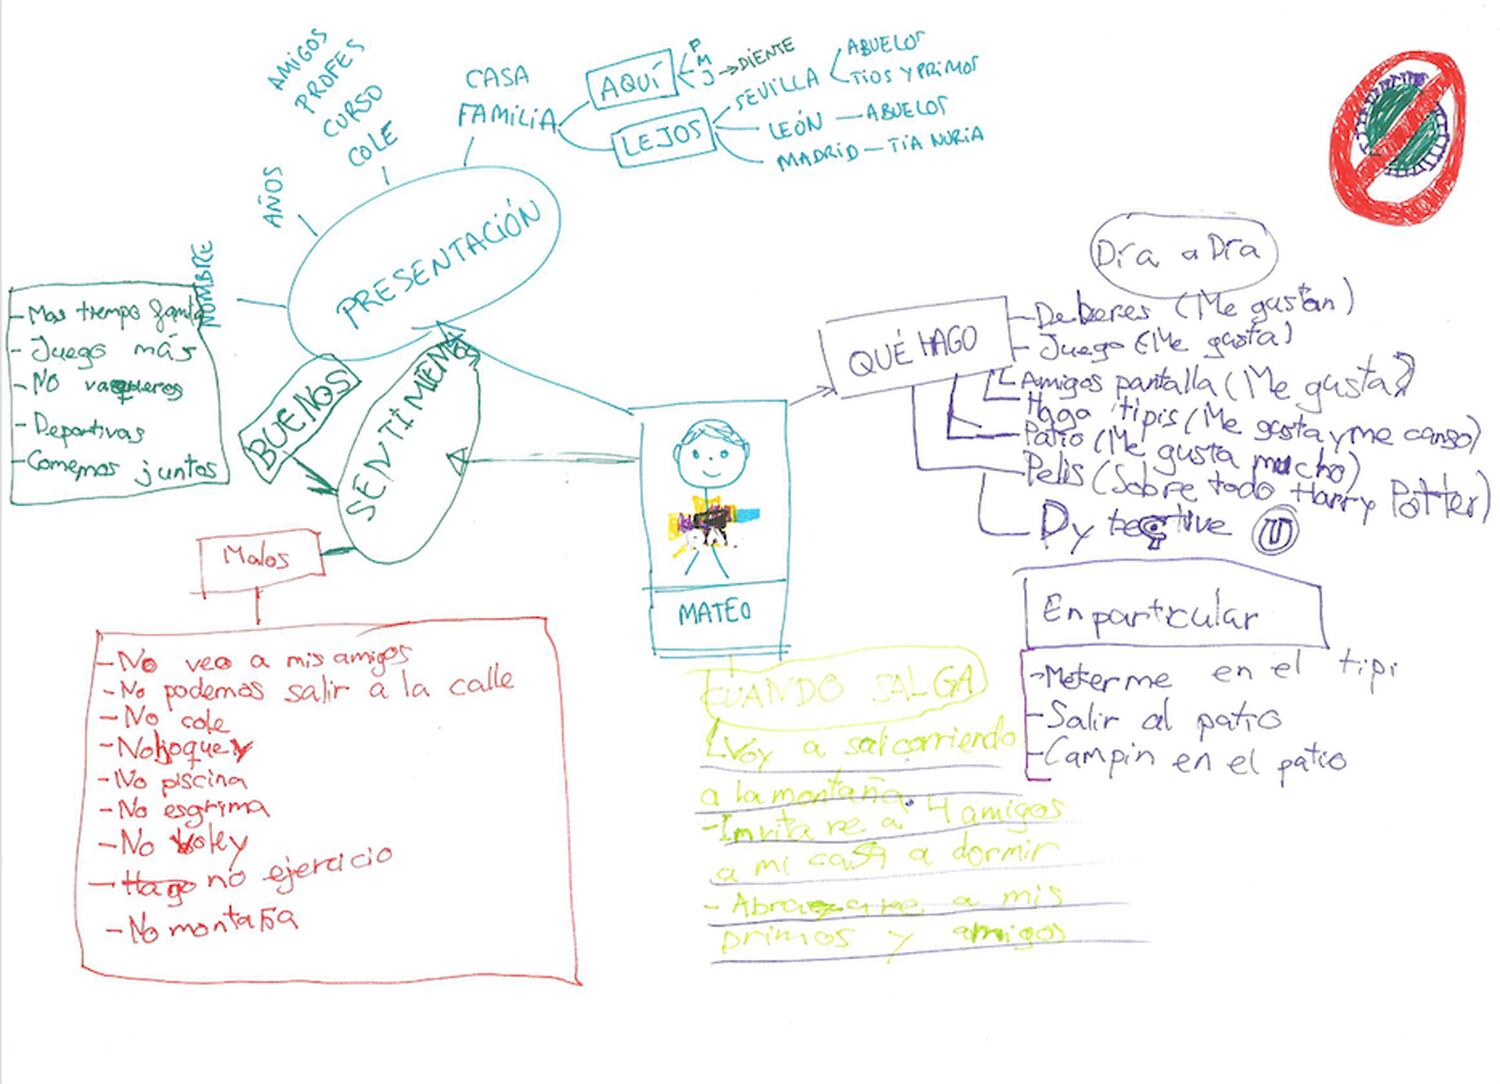 AMIGOS
PROFES
CURSO
COLE
AÑOS
NOMBRE
CASA
FAMILIA
AQUÍ
P
M
J → DIENTE
LEJOS
SEVILLA
ABUELOS
TIOS Y PRIMOS
LEÓN — ABUELOS
MADRID — TIA NURIA
PRESENTACIÓN
- Mas tiempo famila
- Juego más
- No vaqueros
- Deportivas
- Comemos juntos
BUENOS
SENTIMIENTOS
Malos
- No veo a mis amigos
- No podemos salir a la calle
- No cole
- No hoquey
- No piscina
- No esgrima
- No voley
- Hago no ejercicio
- No montaña
MATEO
CUANDO SALGA
Voy a sal corriendo
a la montaña.
- Invitare a 4 amigos
a mi casa a dormir
- Abrazare a mis
primos y amigos
Día a Día
QUÉ HAGO
- Deberes (Me gustan)
- Juego (Me gusta)
- Amigos pantalla (Me gusta)
- Hago tipis (Me gusta y me canso)
- Patio (Me gusta mucho)
- Pelis (Sobre todo Harry Potter)
Dy tective U
En particular
- Meterme en el tipi
- Salir al patio
- Campin en el patio